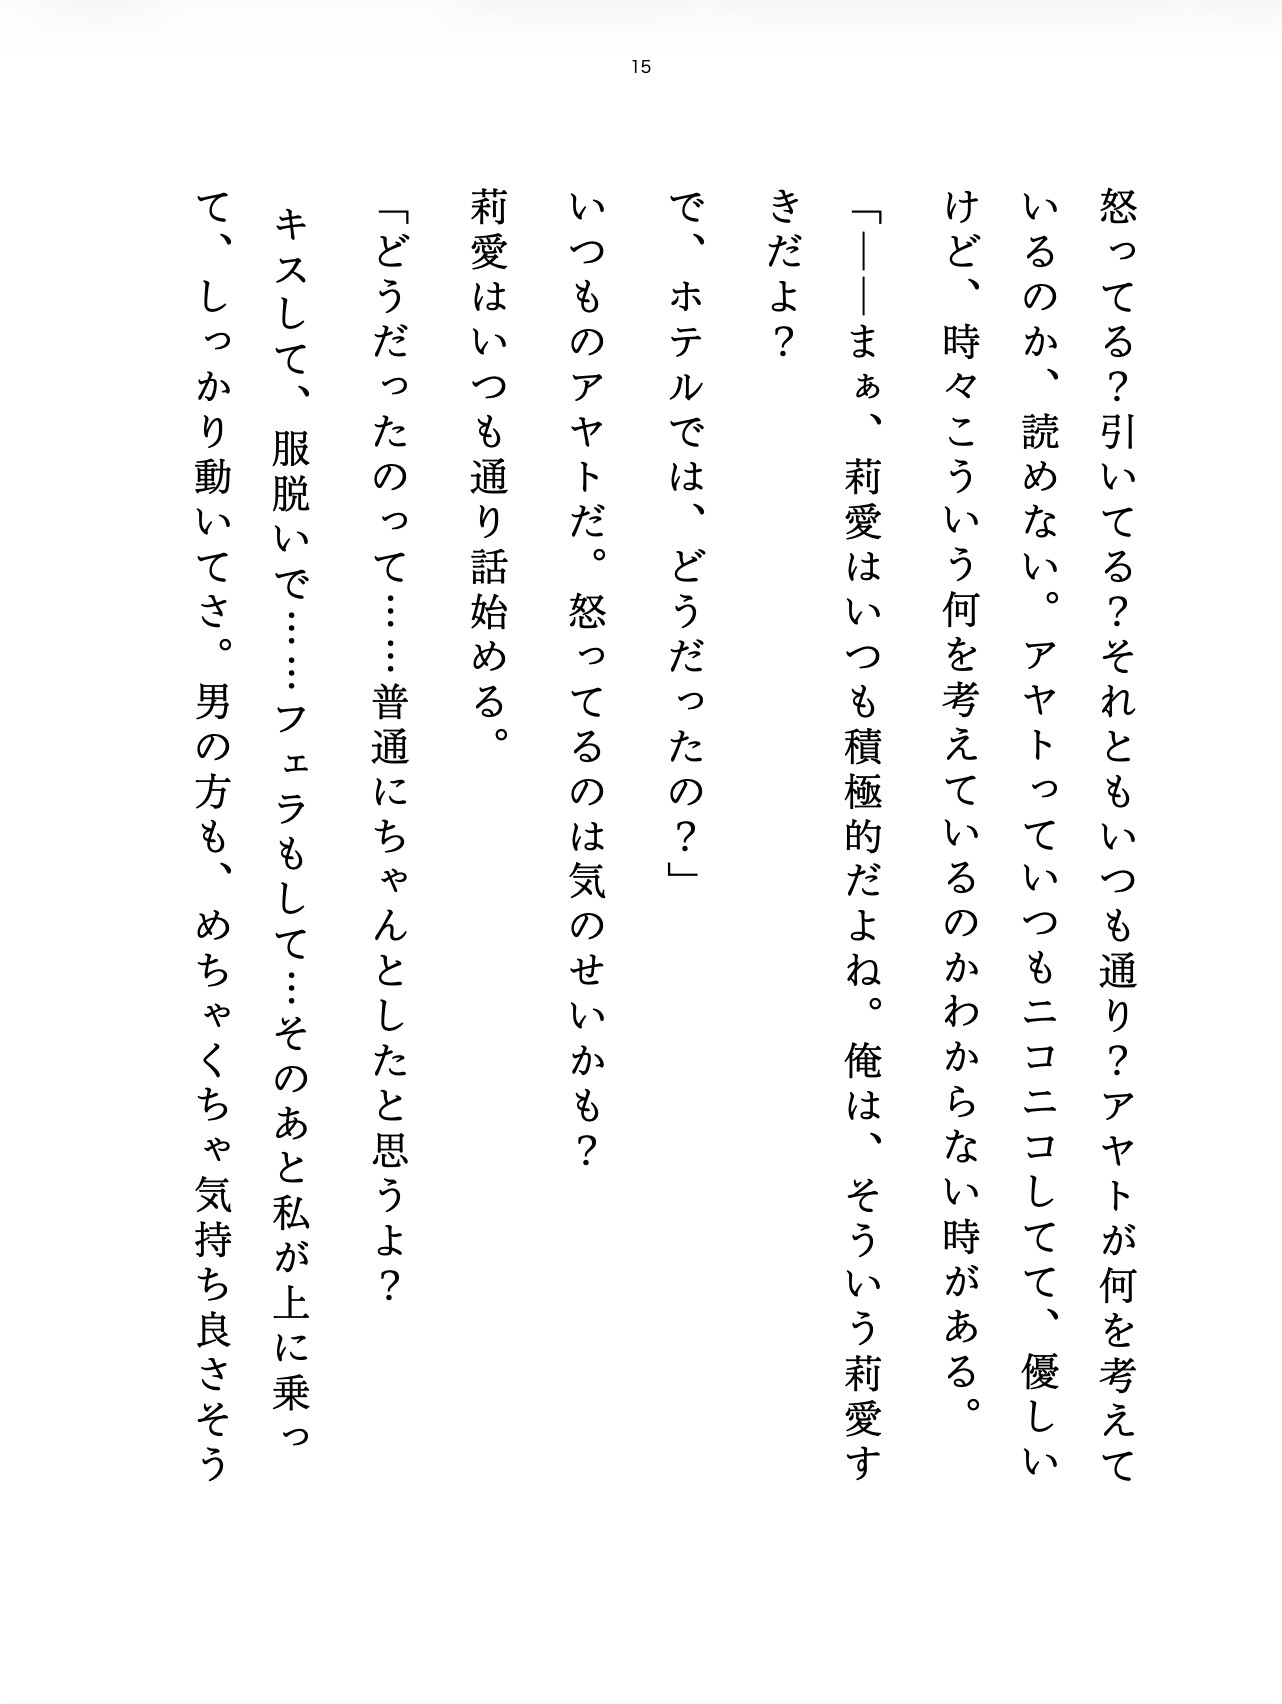 15
怒ってる？引いてる？それともいつも通り？アヤトが何を考えて
いるのか、読めない。アヤトっていつもニコニコしてて、優しい
けど、時々こういう何を考えているのかわからない時がある。
「――まぁ、莉愛はいつも積極的だよね。俺は、そういう莉愛す
きだよ？
で、ホテルでは、どうだったの？」
いつものアヤトだ。怒ってるのは気のせいかも？
莉愛はいつも通り話始める。
「どうだったのって……普通にちゃんとしたと思うよ？
キスして、服脱いで……フェラもして…そのあと私が上に乗っ
て、しっかり動いてさ。男の方も、めちゃくちゃ気持ち良さそう